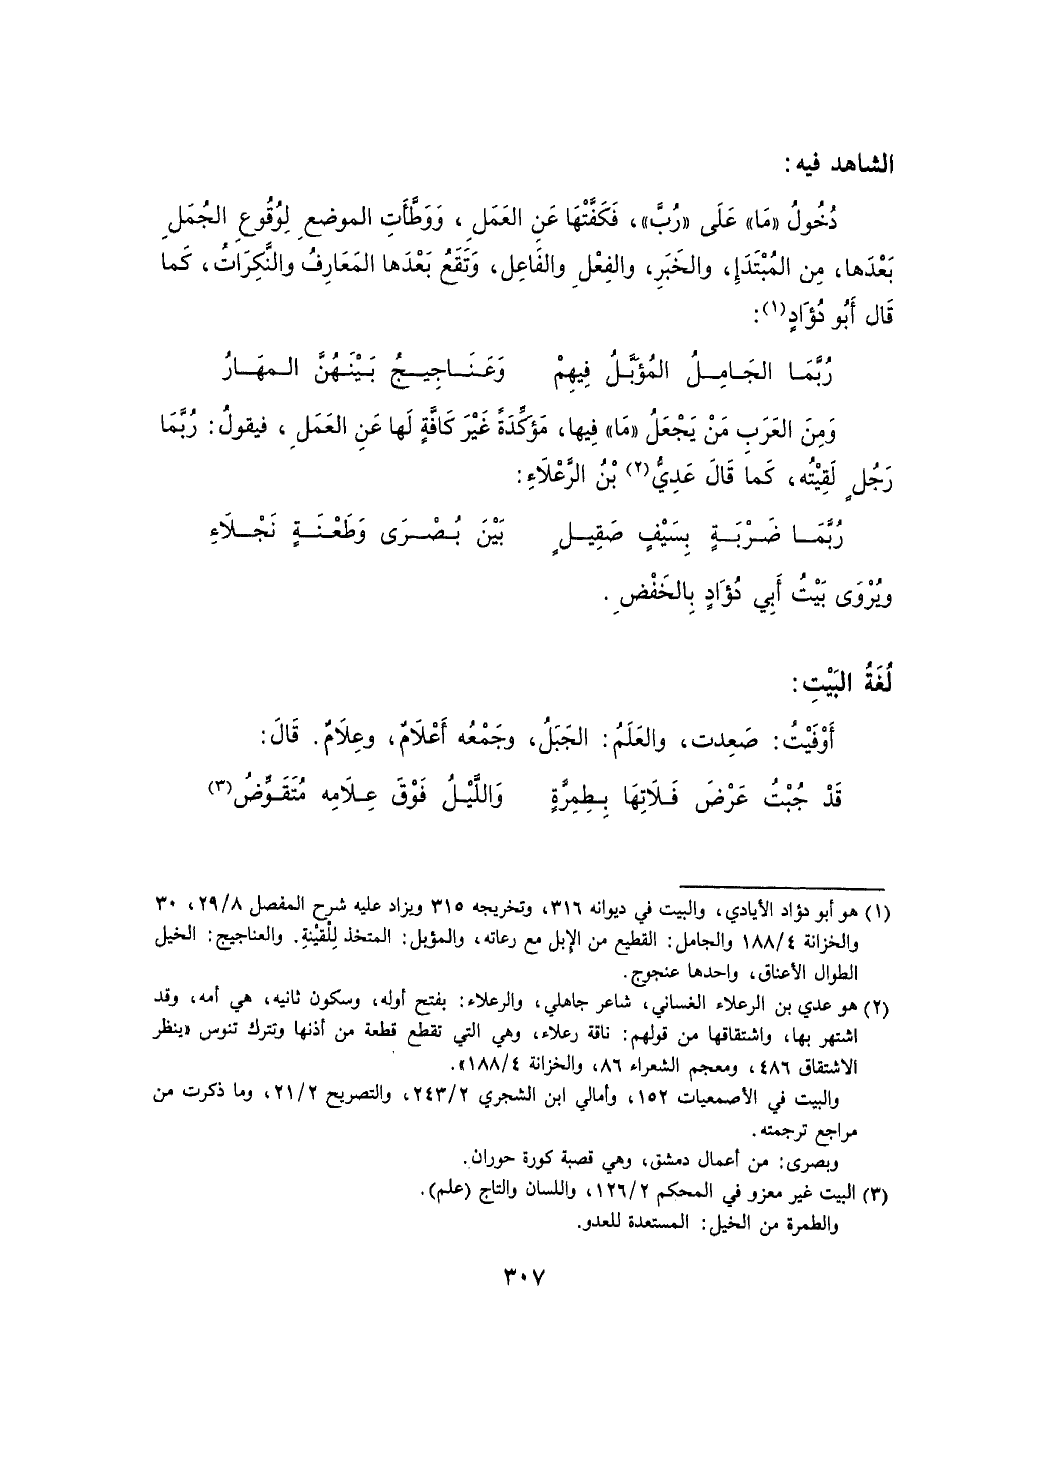 الشاهد فيه:
دُخُولُ «مَا» عَلَى «رُبَّ»، فَكَفَّتْهَا عَنِ العَمَلِ، وَوَطَّأَتِ الموضع لِوُقُوعِ الجُمَلِ
بَعْدَها، مِن المُبْتَدَإِ، والخَبَرِ، والفِعْلِ والفَاعِل، وَتَقَعُ بَعْدَها المَعَارِفُ والنَّكِرَاتُ، كَما
قَال أَبُو دُؤَادٍ(١):
رُبَّمَا الجَامِلُ المُؤَبَّلُ فِيهِمْ وَعَنَاجِيجُ بَيْنَهُنَّ المهَارُ
وَمِنَ العَرَبِ مَنْ يَجْعَلُ «مَا» فيها، مَؤَكِّدَةً غَيْرَ كَافَّةٍ لَها عَنِ العَمَلِ، فيقولُ: رُبَّمَا
رَجُلٍ لَقِيْتُه، كَما قَالَ عَدِيُّ(٢) بْنُ الرَّعْلَاءِ:
رُبَّمَا ضَرْبَةٍ بِسَيْفٍ صَقِيلٍ بَيْنَ بُصْرَى وَطَعْنَةٍ نَجْلَاءِ
ويُرْوَى بَيْتُ أَبِي دُؤَادٍ بِالخَفْضِ.
لُغَةُ البَيْتِ:
أَوْفَيْتُ: صَعِدت، والعَلَمُ: الجَبَلُ، وجَمْعُه أَعْلَامٌ، وعِلَامٌ. قَالَ:
قَدْ جُبْتُ عَرْضَ فَلَاتِهَا بِطِمِرَّةٍ وَاللَّيْلُ فَوْقَ عِلَامِه مُتَقَوِّضُ(٣)
(١) هو أبو دؤاد الأيادي، والبيت في ديوانه ٣١٦، وتخريجه ٣١٥ ويزاد عليه شرح المفصل ٢٩/٨، ٣٠
والخزانة ١٨٨/٤ والجامل: القطيع من الإبل مع رعاته، والمؤبل: المتخذ لِلْقِنْيةِ. والعناجيج: الخيل
الطوال الأعناق، واحدها عنجوج.
(٢) هو عدي بن الرعلاء الغساني، شاعر جاهلي، والرعلاء: بفتح أوله، وسكون ثانيه، هي أمه، وقد
اشتهر بها، واشتقاقها من قولهم: ناقة رعلاء، وهي التي تقطع قطعة من أذنها وتترك تنوس «ينظر
الاشتقاق ٤٨٦، ومعجم الشعراء ٨٦، والخزانة ١٨٨/٤».
والبيت في الأصمعيات ١٥٢، وأمالي ابن الشجري ٢٤٣/٢، والتصريح ٢١/٢، وما ذكرت من
مراجع ترجمته.
وبصرى: من أعمال دمشق، وهي قصبة كورة حوران.
(٣) البيت غير معزو في المحكم ١٢٦/٢، واللسان والتاج (علم).
والطمرة من الخيل: المستعدة للعدو.
٣٠٧